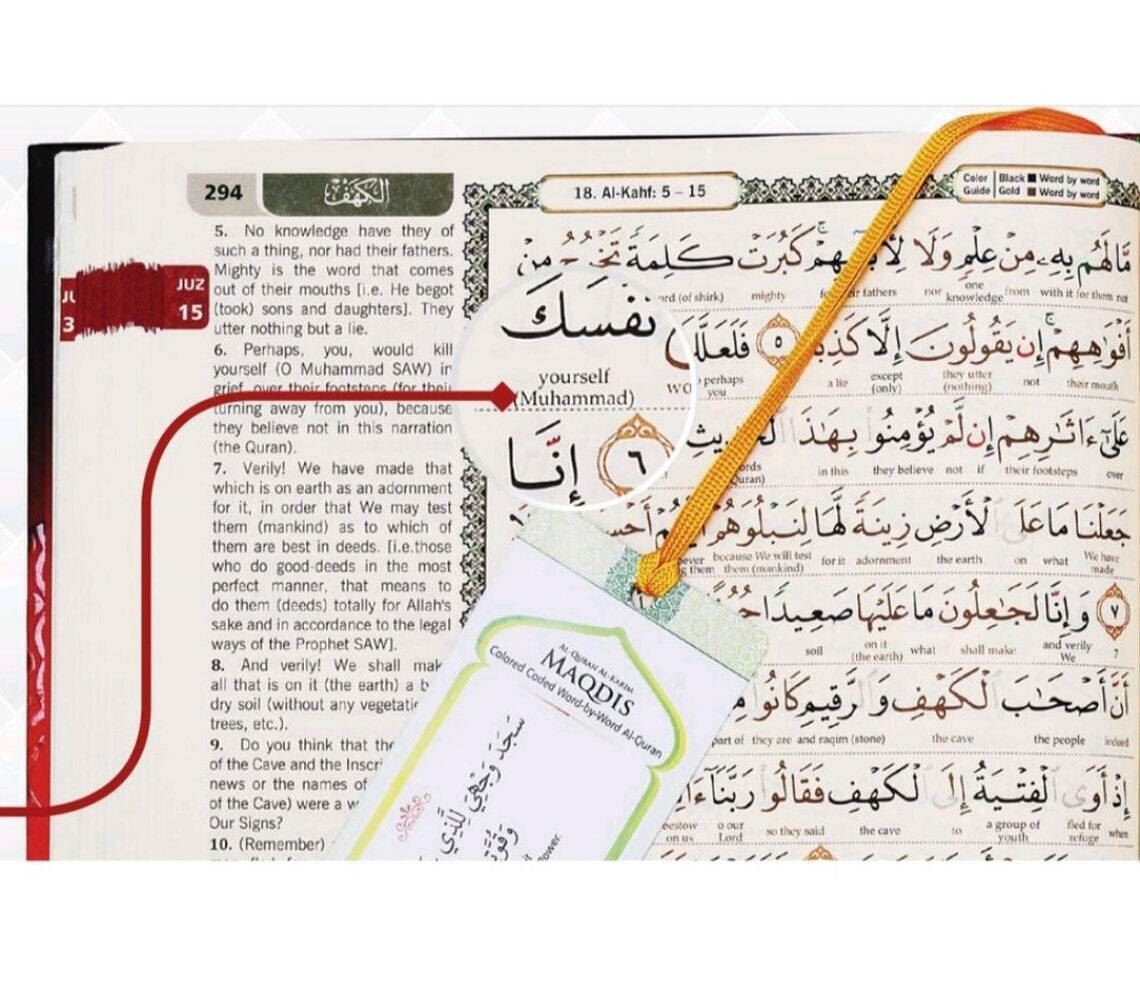 294
الكهف
18. Al-Kahf: 5 – 15
Color Guide | Black ■ Word by word
Gold ■ Word by word
JUZ
15
5. No knowledge have they of
such a thing, nor had their fathers.
Mighty is the word that comes
out of their mouths [i.e. He begot
(took) sons and daughters]. They
utter nothing but a lie.
6. Perhaps, you, would kill
yourself (O Muhammad SAW) in
grief, over their footsteps (for their
turning away from you), because
they believe not in this narration
(the Quran).
7. Verily! We have made that
which is on earth as an adornment
for it, in order that We may test
them (mankind) as to which of
them are best in deeds. [i.e.those
who do good-deeds in the most
perfect manner, that means to
do them (deeds) totally for Allah's
sake and in accordance to the legal
ways of the Prophet SAW].
8. And verily! We shall mak
all that is on it (the earth) a b
dry soil (without any vegetatic
trees, etc.).
9. Do you think that the
of the Cave and the Inscri
news or the names of
of the Cave) were a w
Our Signs?
10. (Remember)
مَّا لَهُم بِهِۦ مِنْ عِلْمٍ وَلَا لِأَبَآئِهِمْ كَبُرَتْ كَلِمَةً تَخْرُجُ مِنْ
(of shirk) mighty fathers nor one knowledge from with it for them not
أَفْوَٰهِهِمْ إِن يَقُولُونَ إِلَّا كَذِبًا ٥ فَلَعَلَّكَ
perhaps you a lie except (only) they utter (nothing) not their mouth
نَفْسَكَ
yourself
(Muhammad)
عَلَىٰٓ ءَاثَٰرِهِمْ إِن لَّمْ يُؤْمِنُوا بِهَٰذَا الْحَدِيثِ
in this they believe not if their footsteps over
٦ إِنَّا
جَعَلْنَا مَا عَلَى الْأَرْضِ زِينَةً لَّهَا لِنَبْلُوَهُمْ أَيُّهُمْ أَحْسَ
because We will test them (mankind) for it adornment the earth on what We have made
٧ وَإِنَّا لَجَٰعِلُونَ مَا عَلَيْهَا صَعِيدًا جُ
soil on it (the earth) what shall make and verily We 7
أَنَّ أَصْحَٰبَ الْكَهْفِ وَالرَّقِيمِ كَانُوا مِ
part of they are and raqim (stone) the cave the people indeed
إِذْ أَوَى الْفِتْيَةُ إِلَى الْكَهْفِ فَقَالُوا رَبَّنَآ ءَا
bestow on us o our Lord so they said the cave to a group of youth fled for refuge when
AL-QURAN AL-KARIM
MAQDIS
Colored Coded Word-by-Word Al-Quran
سَجَدَ وَجْهِيَ لِلَّذِي